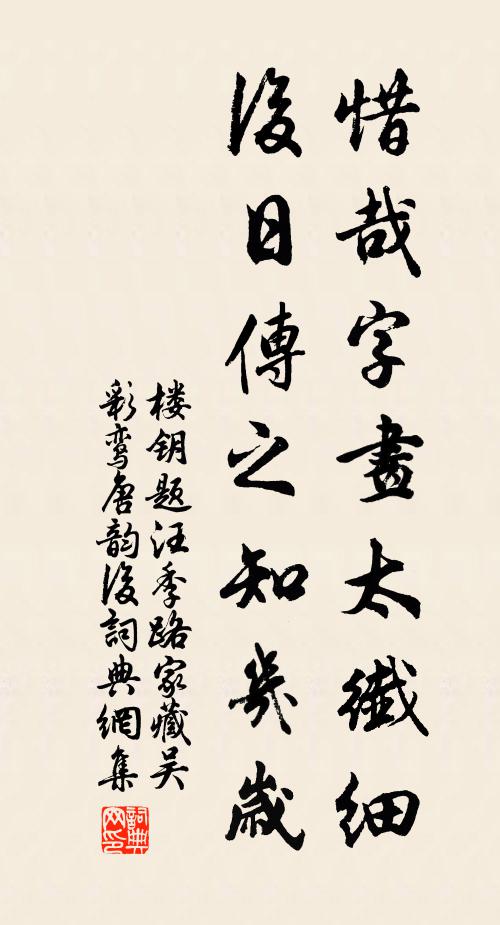 惜哉字畫太纖細
後日傳之知幾歲
楼钥题汪季路家藏吴
彩鸾唐韵後詞典網集
詞典
网印